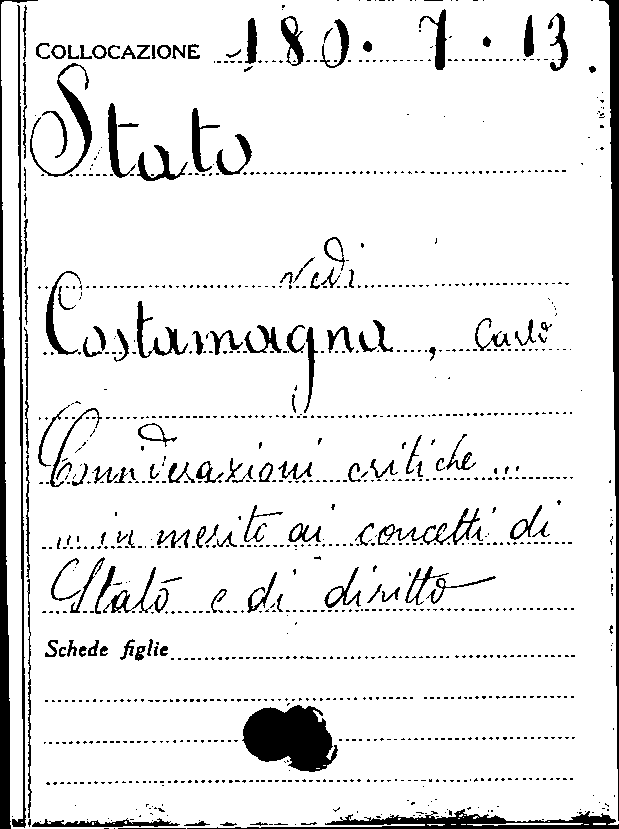 COLLOCAZIONE 180. 7. 13.
Stato
vedi
Costamagna, Carlo
Considerazioni critiche ...
... in merito ai concetti di
Stato e di diritto
Schede figlie